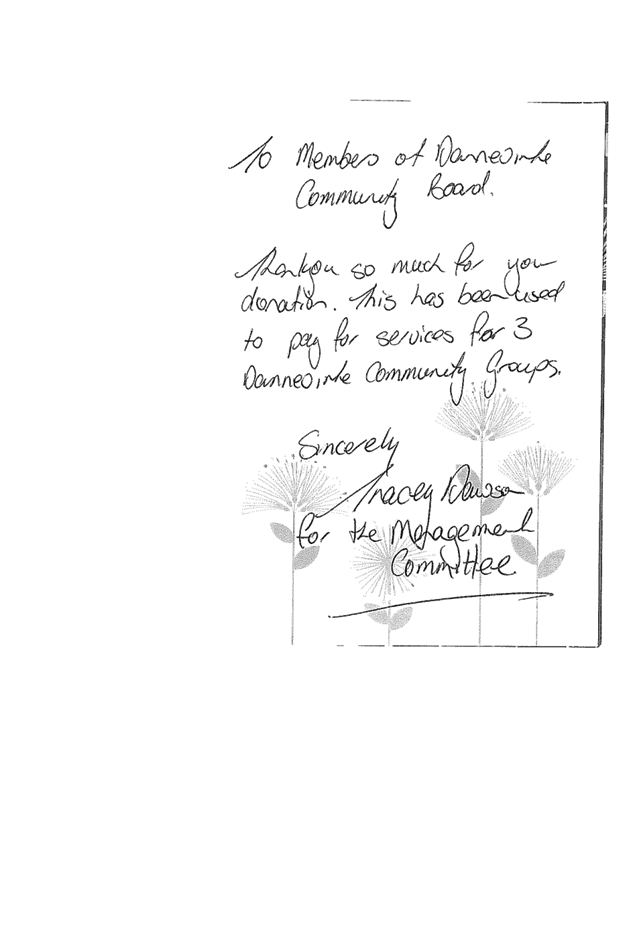 To Members of Dannevirke
Community Board.
Thankyou so much for you
donation. This has been used
to pay for services for 3
Dannevirke Community Groups.
Sincerely
Tracey Dawson
for the Management
Committee.